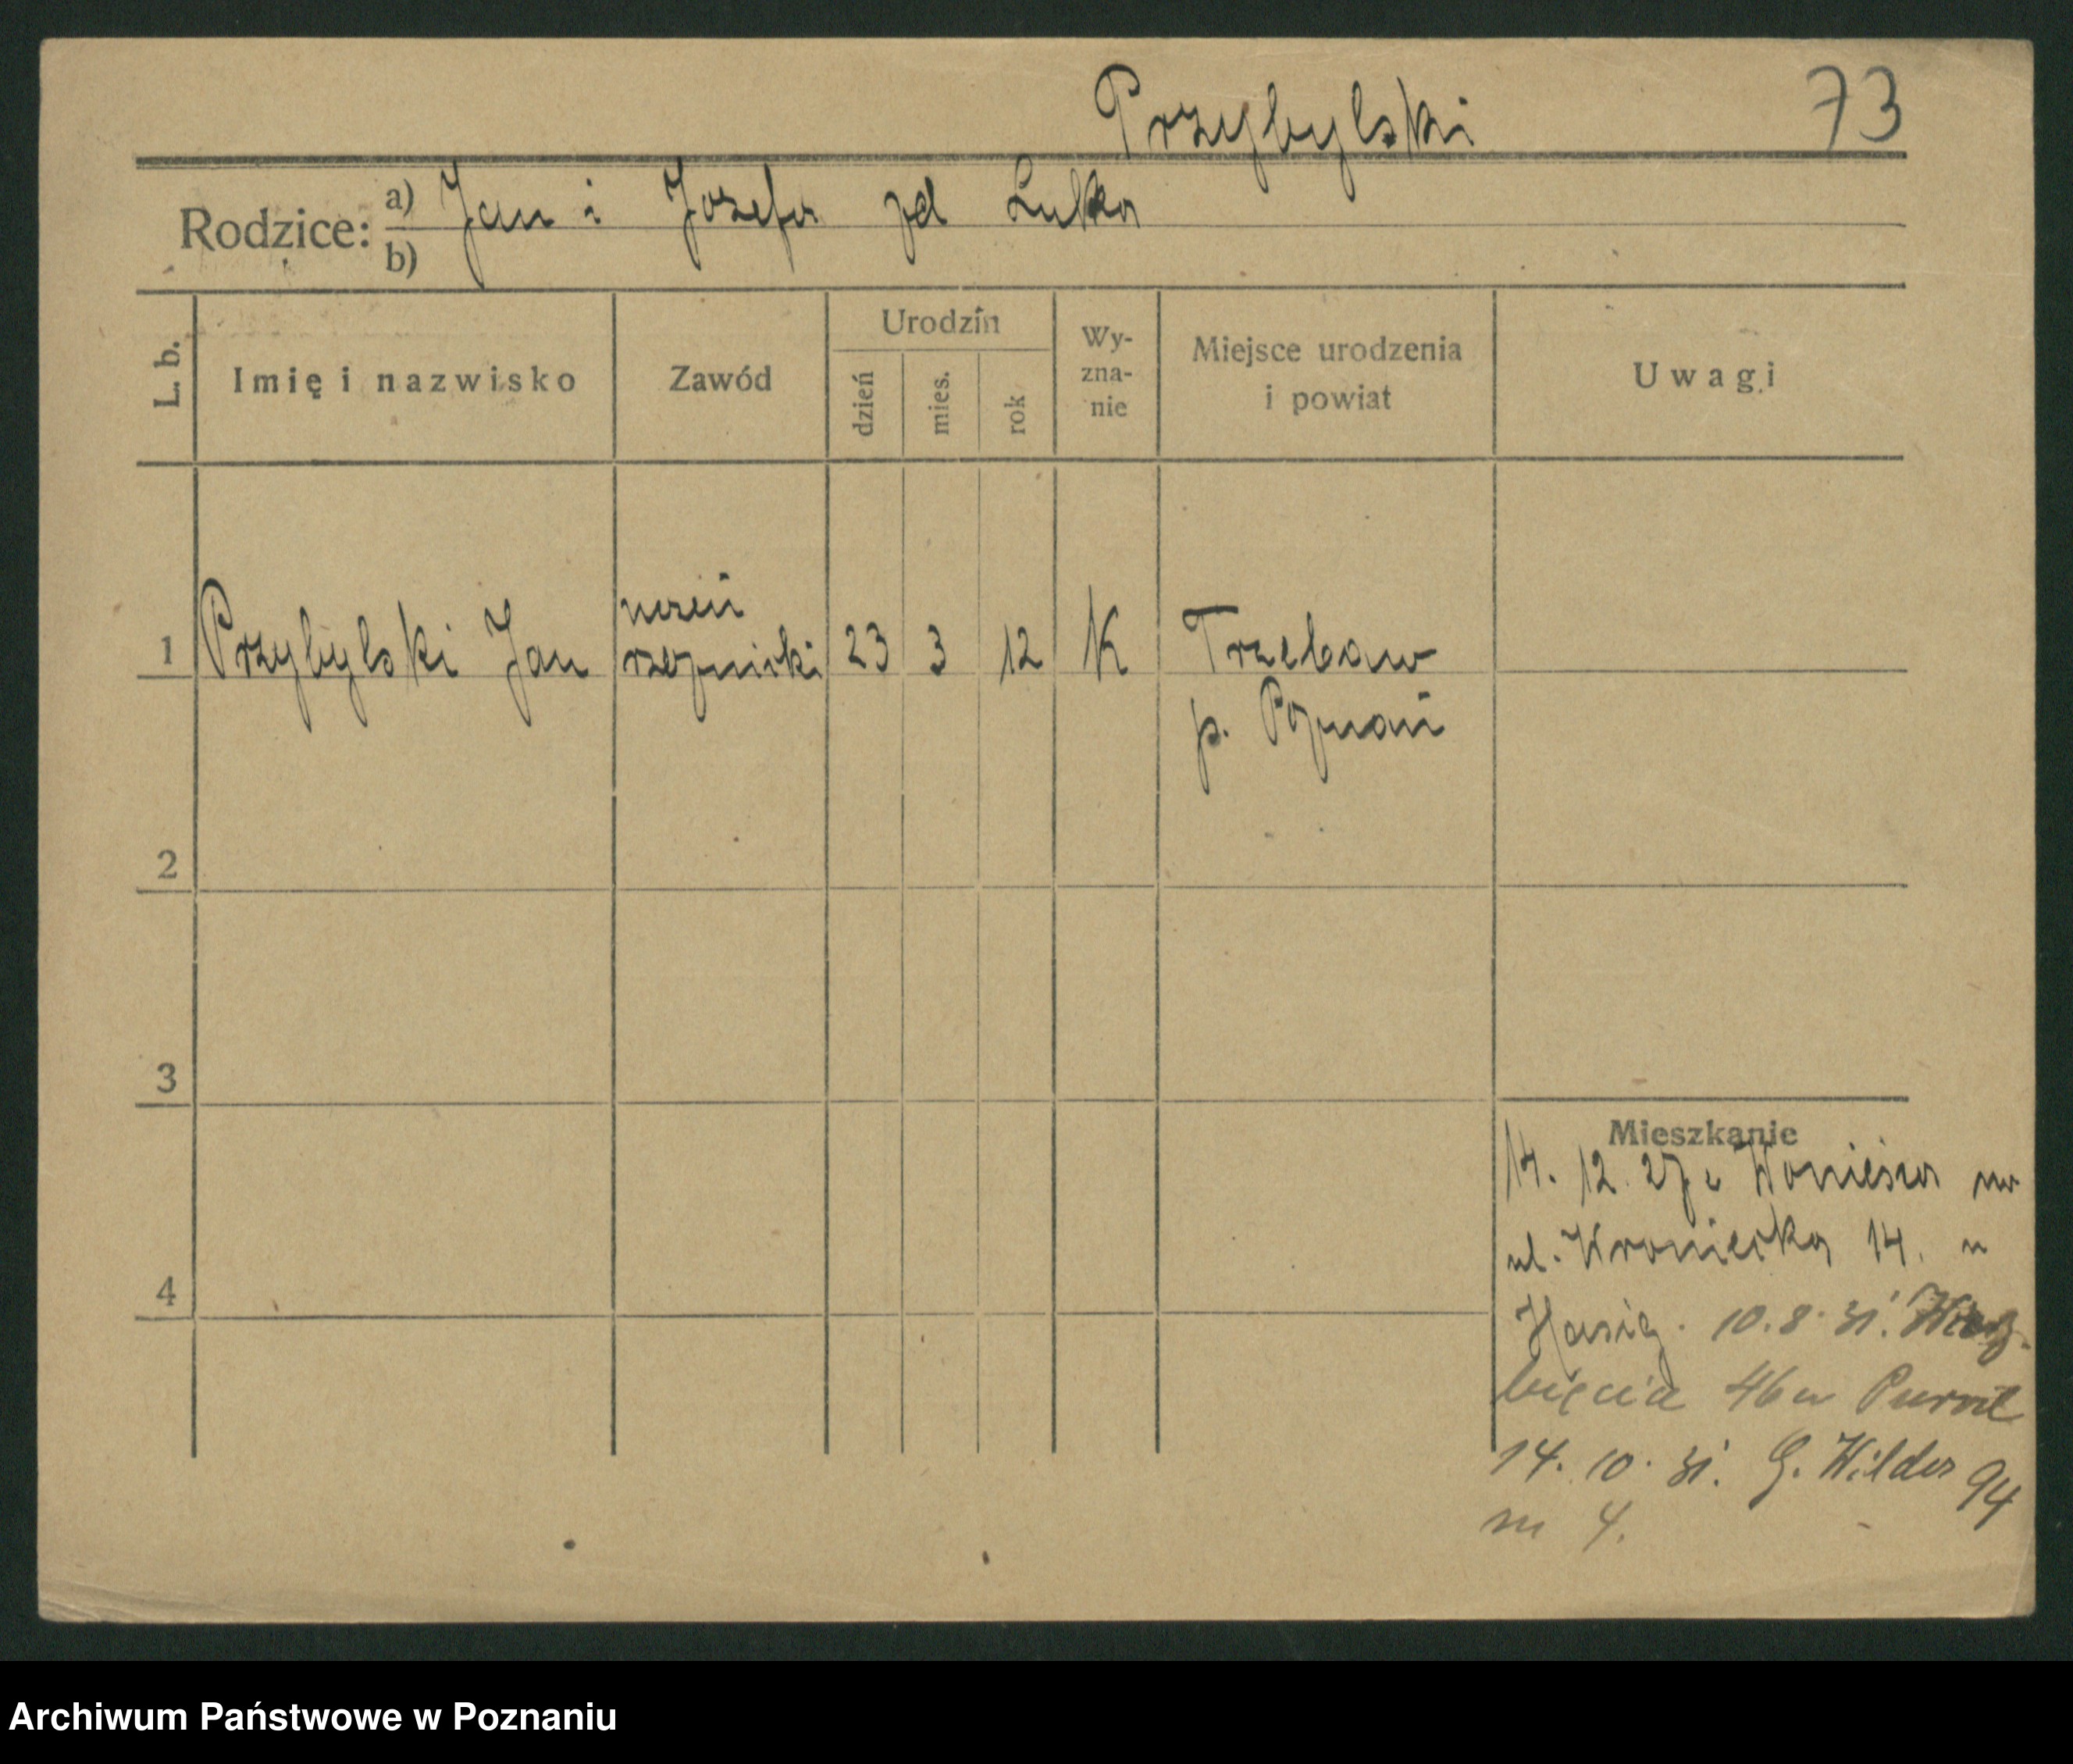 Przybylski 73
Rodzice: a) Jan i Jozefa zd Luka
b)
L. b. Imię i nazwisko Zawód Urodzin dzień mies. rok Wyznanie Miejsce urodzenia i powiat Uwagi
uczeń
1 Przybylski Jan rzeźnicki 23 3 12 K Trzebaw
p. Poznań
2
3
Mieszkanie
14. 12. 27 z Wonieścia na
ul. Kroniecka 14. u
4
10. 8. 31. Wierz-
bięcia 46 u
14. 10. 31. G. Wilda 94
m 4.
Archiwum Państwowe w Poznaniu